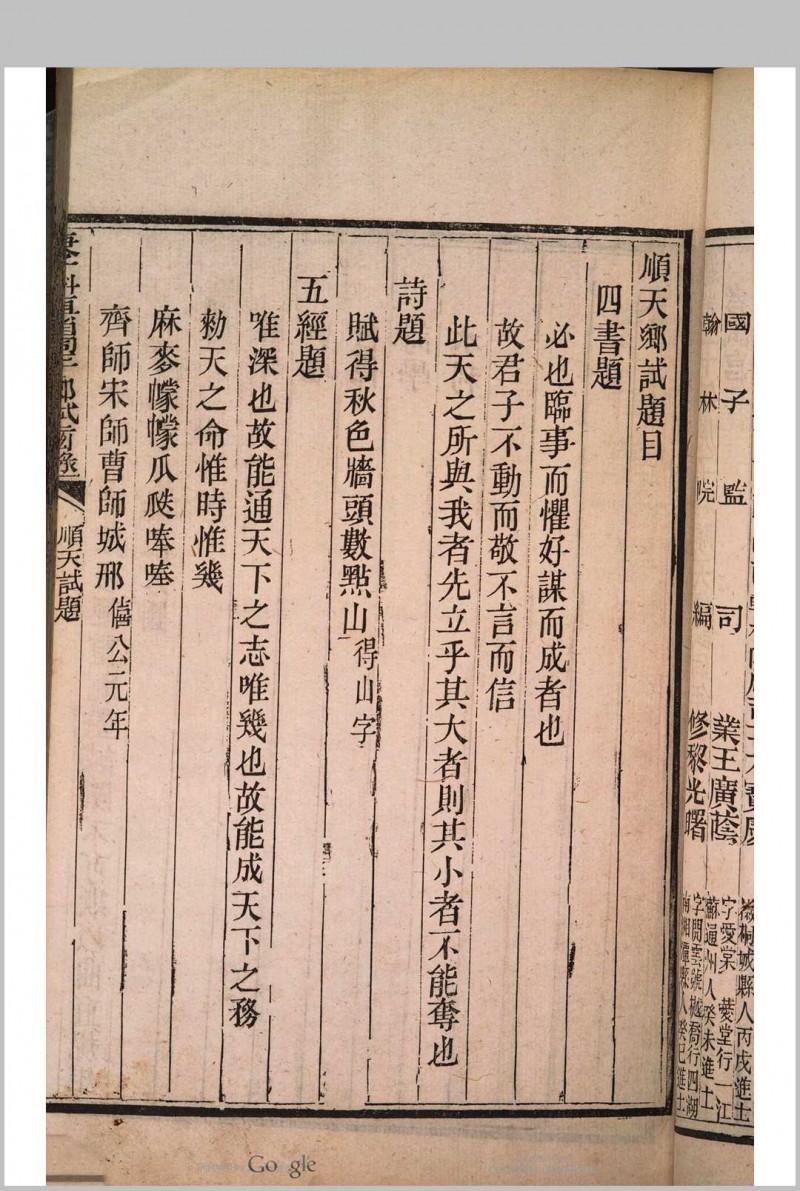 國子監司業王廣蔭
字愛棠 薆堂行一江
蘇通州人癸未進士
翰林院編修黎光曙
字開雲號樾喬行四湖
南湘潭縣人癸巳進士
順天鄉試題目
四書題
必也臨事而懼好謀而成者也
故君子不動而敬不言而信
此天之所與我者先立乎其大者則其小者不能奪也
詩題
賦得秋色牆頭數點山得山字
五經題
唯深也故能通天下之志唯幾也故能成天下之務
勑天之命惟時惟幾
麻麥幪幪瓜瓞唪唪
齊師宋師曹師城邢僖公元年
順天試題
Google